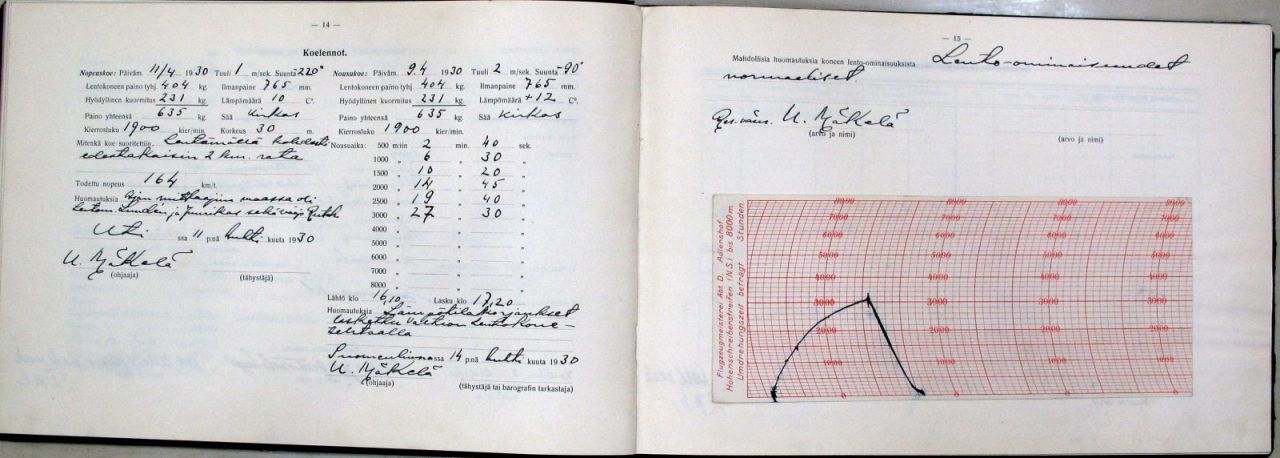 — 14 —
Koelennot.
Nopeuskoe: Päiväm. 11/4 1930 Tuuli 1 m/sek. Suunta 220°
Lentokoneen paino tyhj. 404 kg. Ilmanpaine 765 mm.
Hyödyllinen kuormitus 231 kg. Lämpömäärä 10 C°.
Paino yhteensä 635 kg. Sää kirkas
Kierrosluku 1900 kier/min. Korkeus 30 m.
Mitenkä koe suoritettiin Lentämällä kahdesti
edestakaisin 2 km. rata
Todettu nopeus 164 km/t.
Huomautuksia Ajan mittaajina maassa oli
Utti ssa 11 p:nä huhti kuuta 1930
U. Mäkelä
(ohjaaja) (tähystäjä)
Nousukoe: Päiväm. 9.4 1930 Tuuli 2 m/sek. Suunta 90°
Lentokoneen paino tyhj. 404 kg. Ilmanpaine 765 mm.
Hyödyllinen kuormitus 231 kg. Lämpömäärä +12 C°.
Paino yhteensä 635 kg. Sää kirkas
Kierrosluku 1900 kier/min.
Nousuaika: 500 m:iin 2 min. 40 sek.
1000 „ 6 „ 30 „
1500 „ 10 „ 20 „
2000 „ 14 „ 45 „
2500 „ 19 „ 40 „
3000 „ 27 „ 30 „
4000 „ „ „
5000 „ „ „
6000 „ „ „
7000 „ „ „
8000 „ „ „
Lähtö klo 16,10 Lasku klo 17,20
Huomautuksia Lämpötilakorjaukset
laskettu Valtion lentokone-
tehtaalla
Suomenlinnassa 14 p:nä huhti kuuta 1930
U. Mäkelä
(ohjaaja) (tähystäjä tai barografin tarkastaja)
— 15 —
Mahdollisia huomautuksia koneen lento-ominaisuuksista Lento-ominaisuudet
normaaliset
Res. vänr. U. Mäkelä
(arvo ja nimi) (arvo ja nimi)
Flugzeugmeisterei Abt. D. Adlershof
Höhenschreiberstreifen (N.S.) bis 8000 m
Umdrehungszeit beträgt Stunden
8000 8000 8000
7000 7000 7000
6000 6000 6000
5000 5000 5000
4000 4000 4000
3000 3000 3000
2000 2000 2000
1000 1000 1000
0 0 0